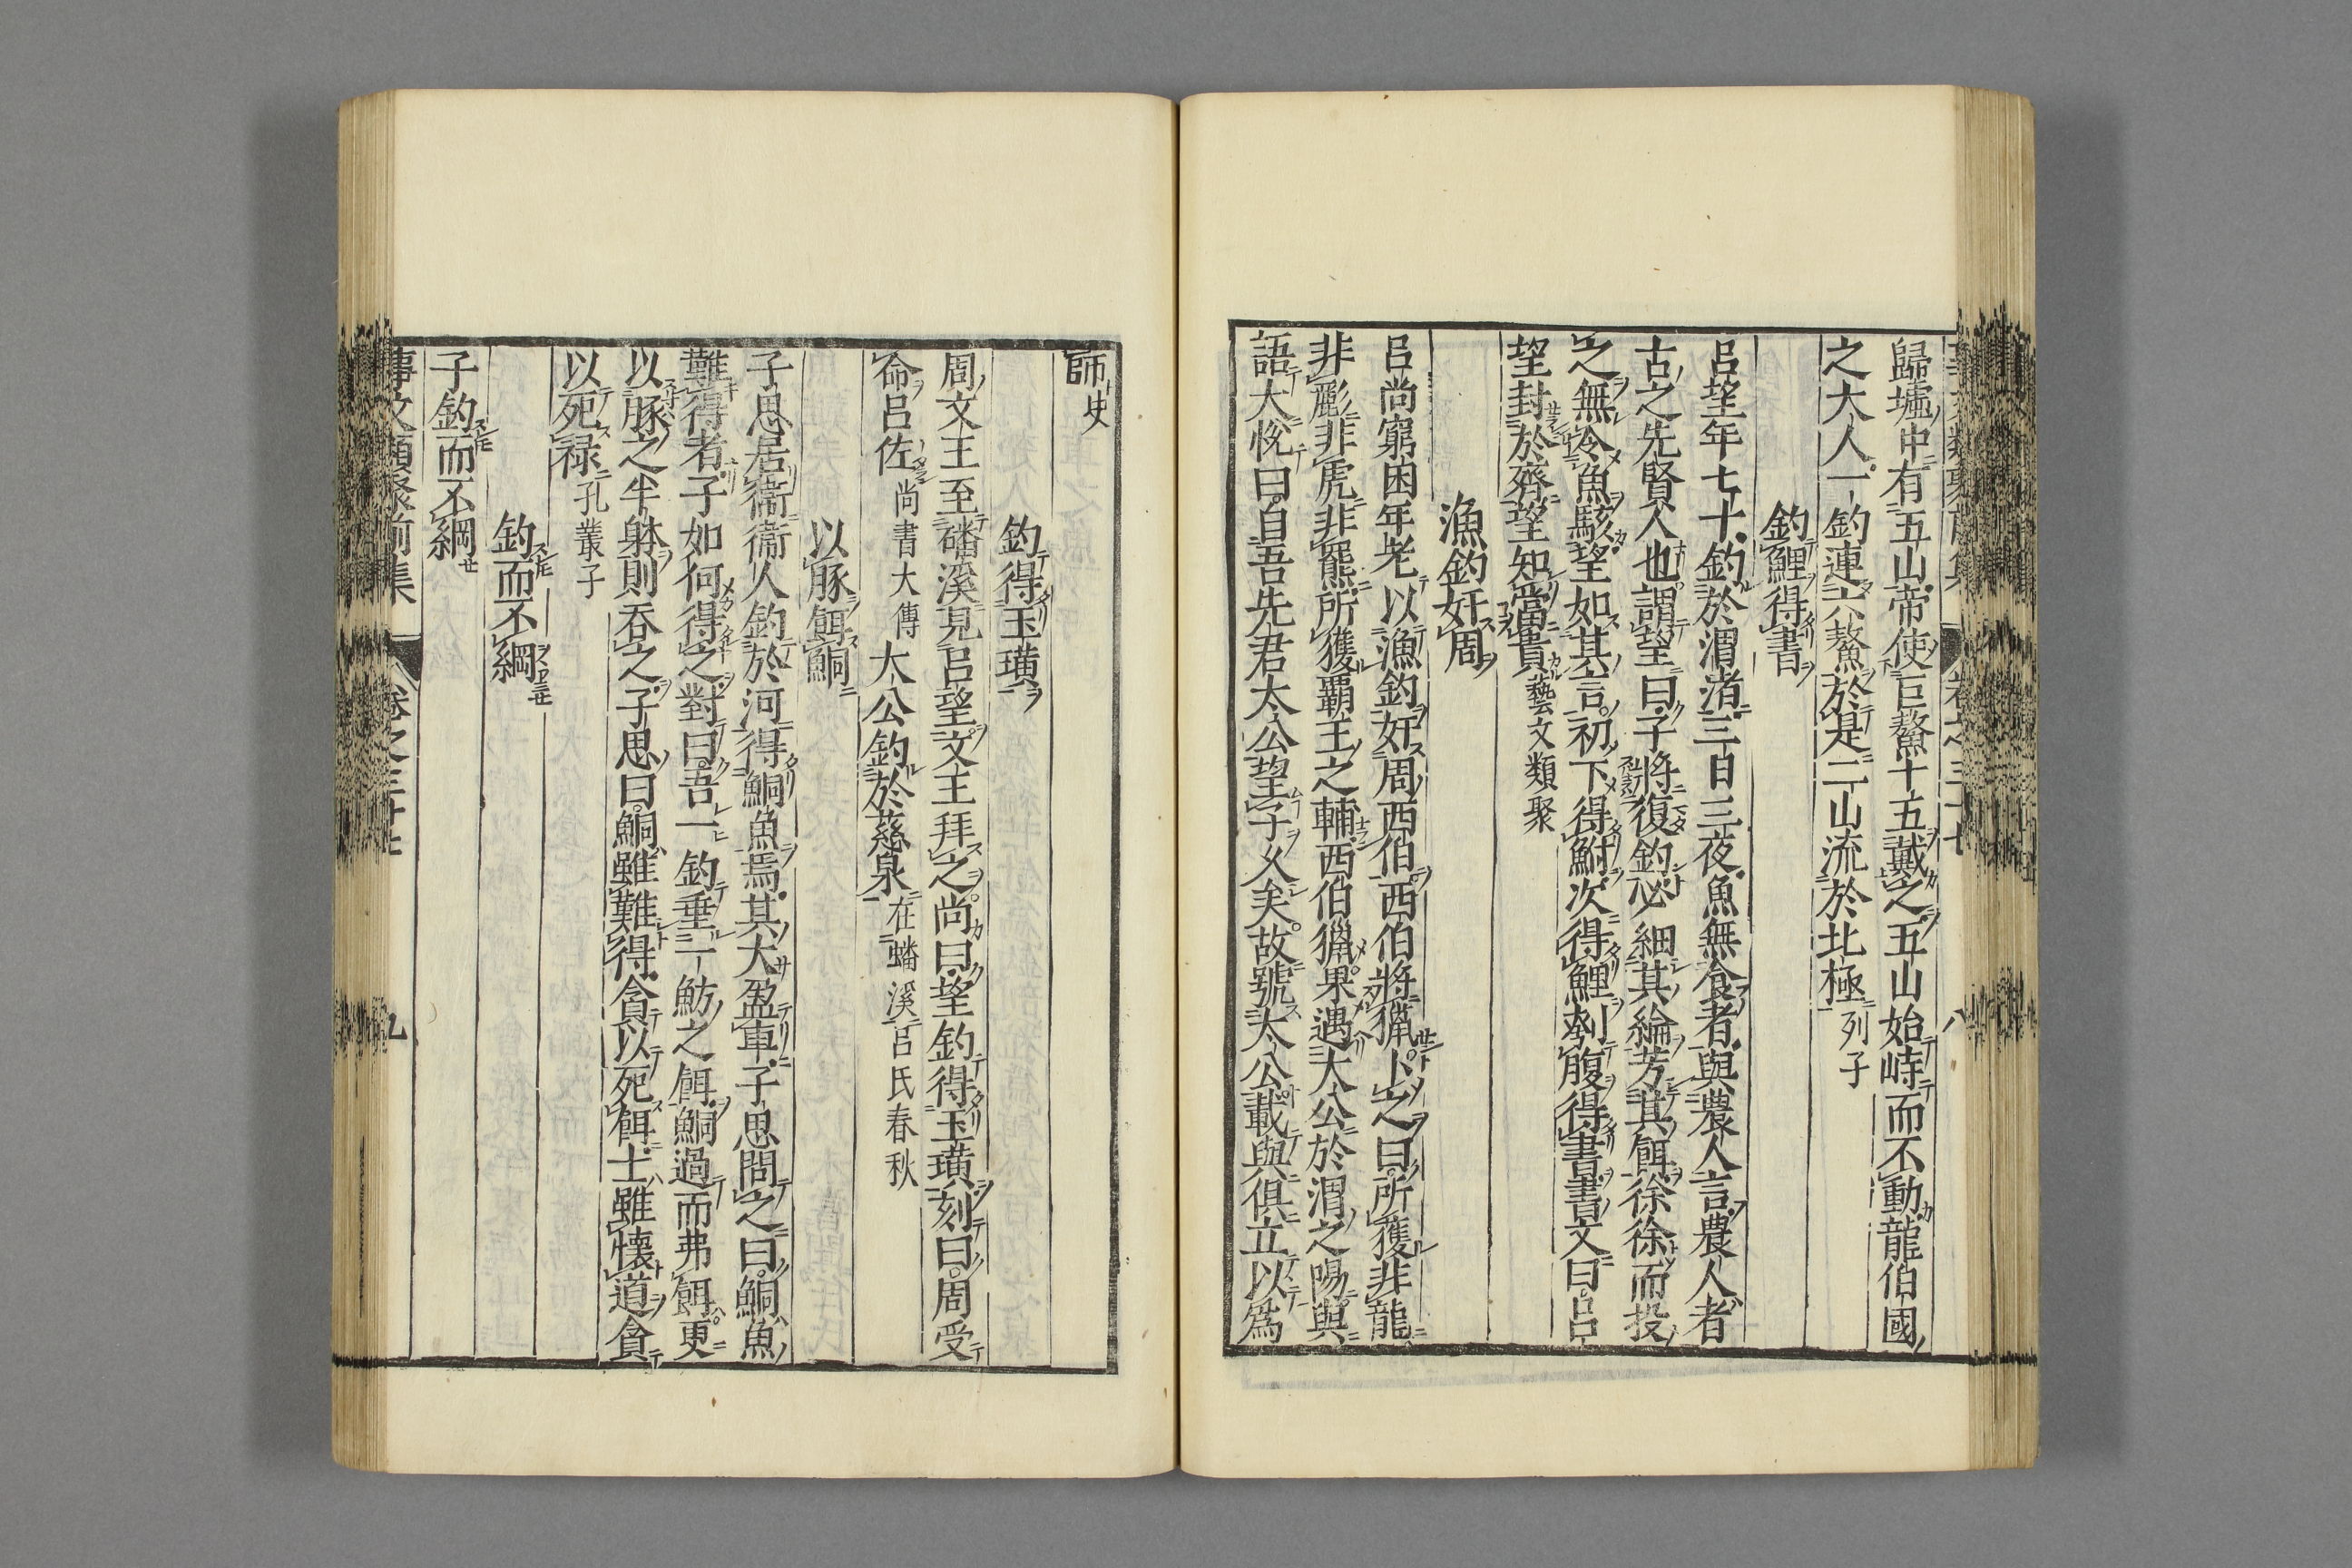 歸墟中有五山帝使巨鰲十五戴之五山始峙而不動龍伯國
之大人一釣連六鰲於是二山流於北極列子
釣鯉得書
呂望年七十釣於渭渚三日三夜魚無食者與農人言農人者
古之先賢人也謂望曰子將復釣必細其綸芳其餌徐徐而投
之無令魚駭望如其言初下得鮒次得鯉刳腹得書書文曰呂
望封於齊望知當貴藝文類聚
漁釣奸周
呂尚窮困年老以漁釣奸周西伯西伯將獵卜之曰所獲非龍
非彲非虎非羆所獲覇王之輔西伯獵果遇太公於渭之陽與
語大悅曰自吾先君太公望子久矣故號太公載與俱立以爲
師史
釣得玉璜
周文王至磻溪見呂望文王拜之尚曰望釣得玉璜刻曰周受
命呂佐尚書大傳太公釣於慈泉在蟠溪呂氏春秋
以豚餌鮦
子思居衞衞人釣於河得鮦魚焉其大盈車子思問之曰鮦魚
難得者子如何得之對曰吾一釣垂一魴之餌鮦過而弗餌更
以豚之半躰則吞之子思曰鮦雖難得貪以死餌士雖懐道貪
以死禄孔叢子
釣而不綱
子釣而不綱
事文類聚前集 卷之三十七 九